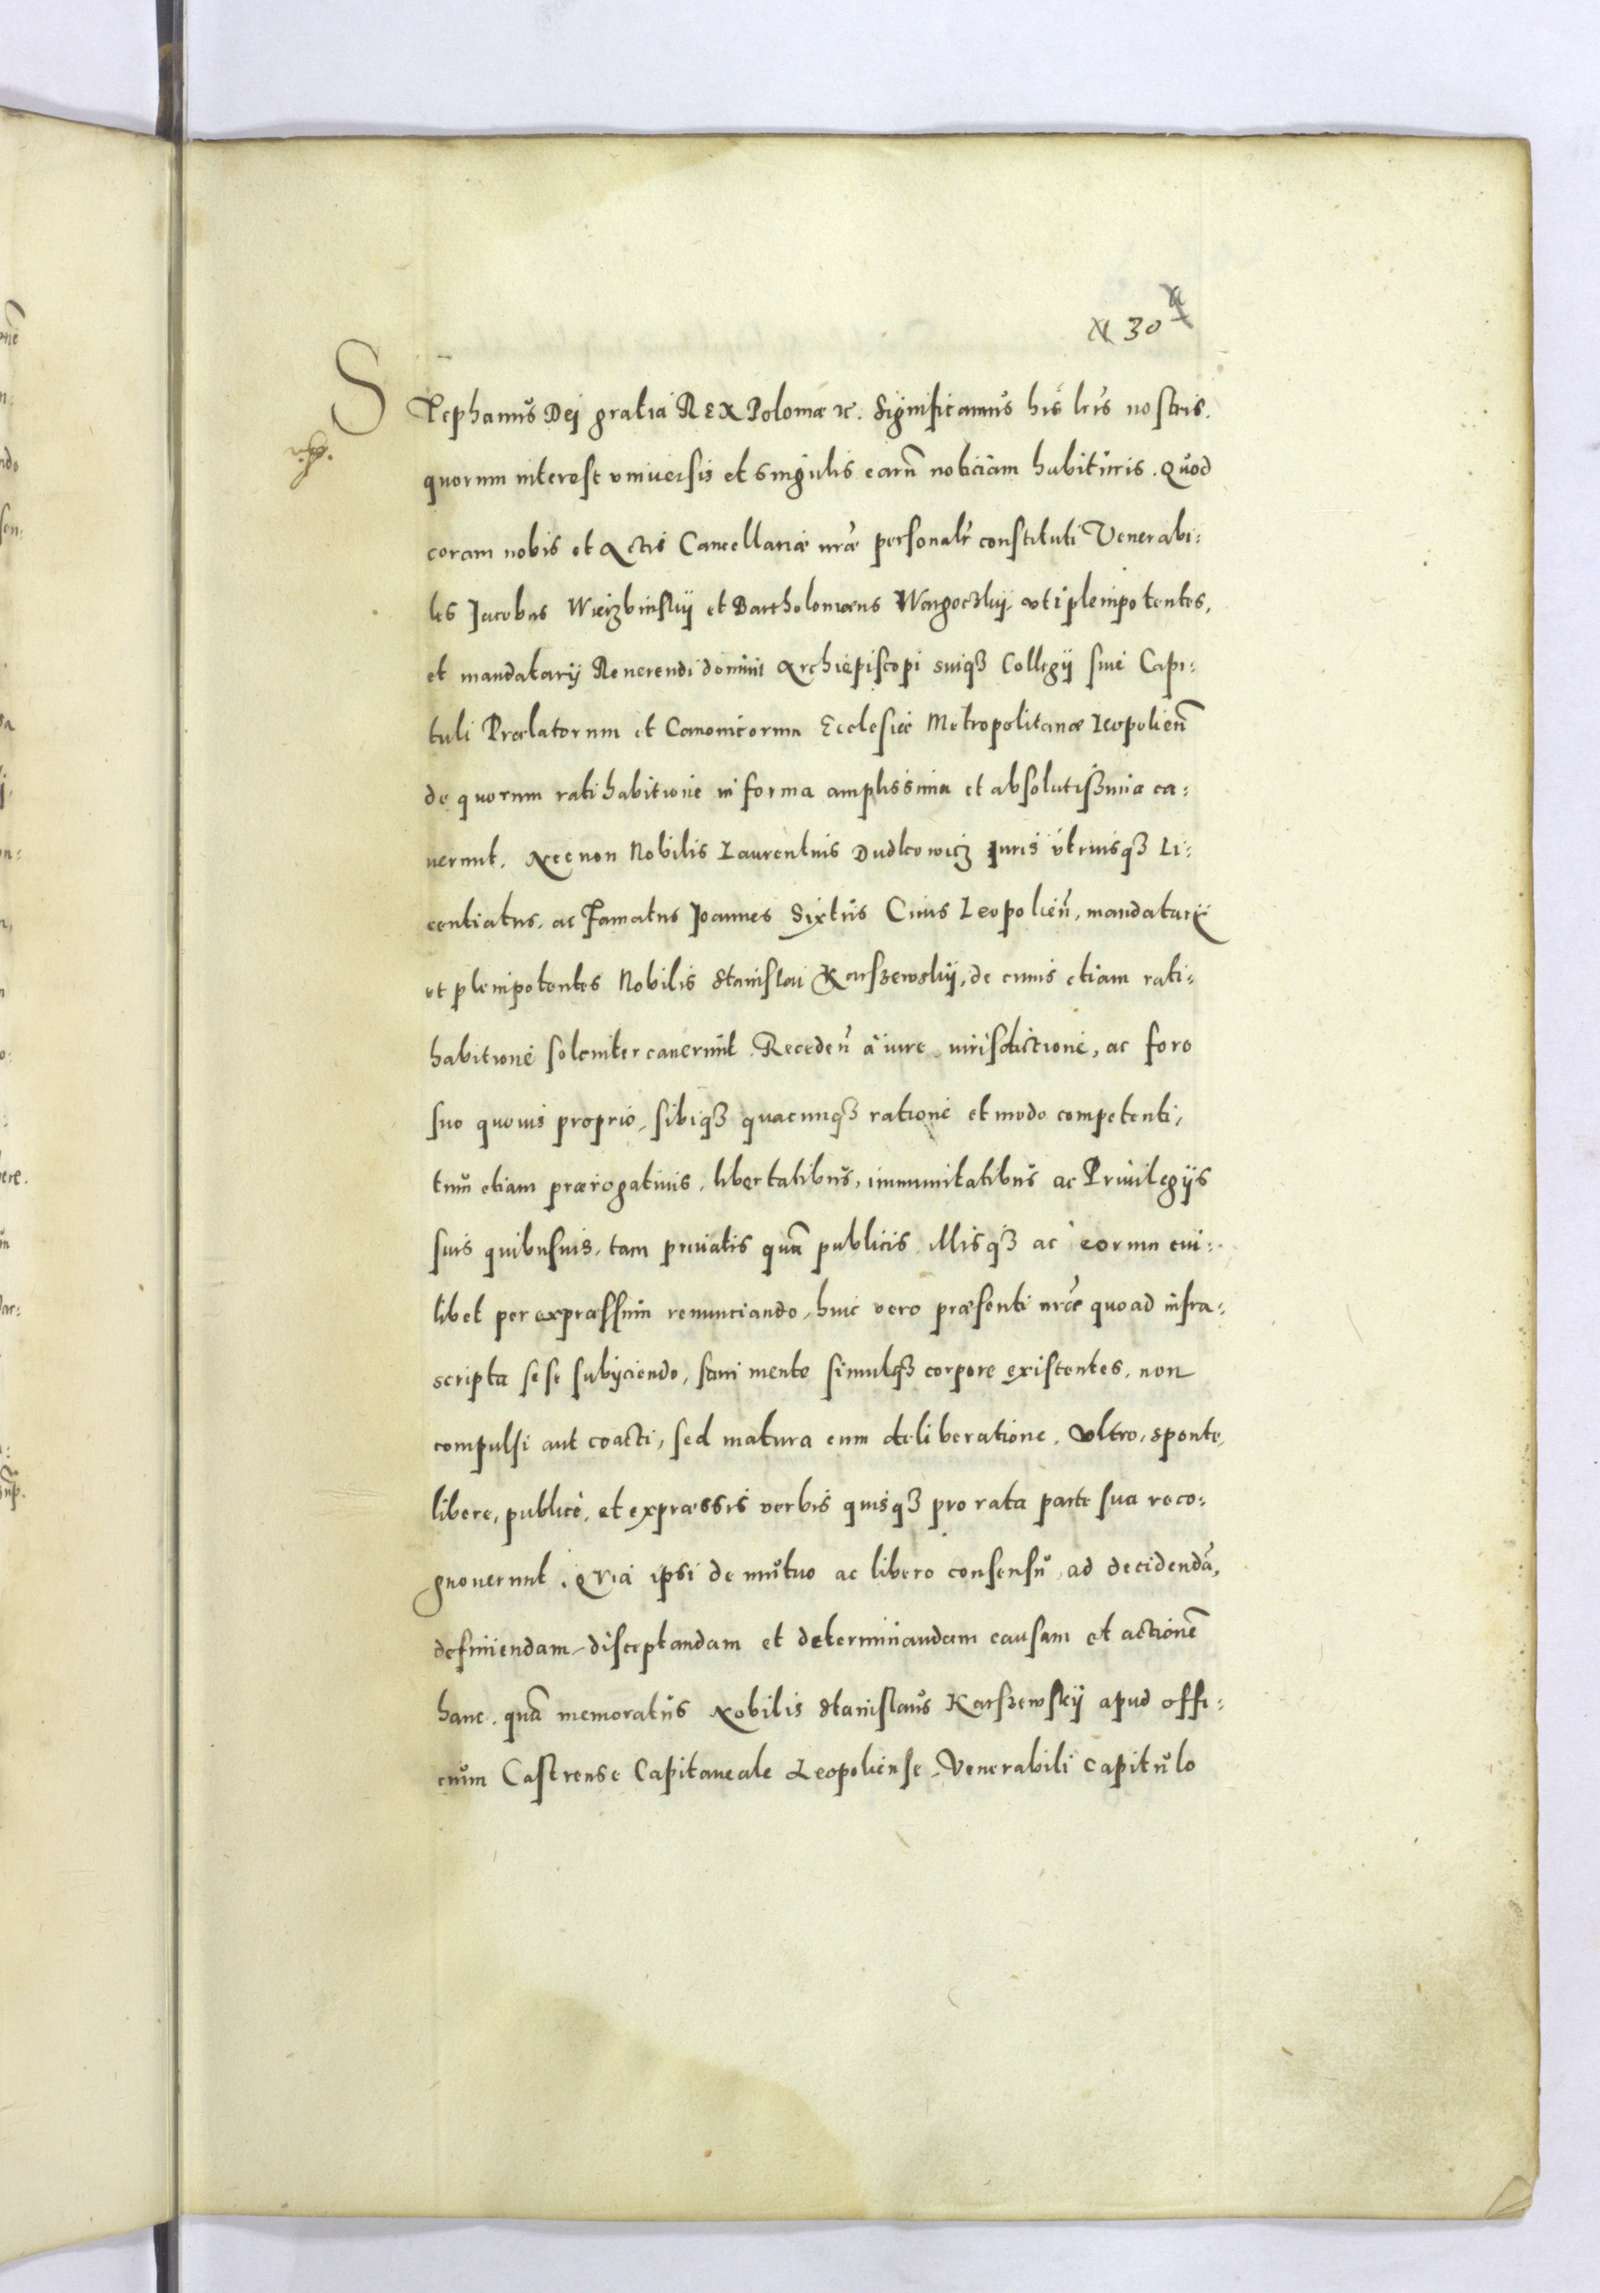 30
STephanus Dej gratia REX Poloniæ &c. Significamus his lr̃is nostris.
quorum interest vniuersis et singulis earũ noticiam habituris. Quod
coram nobis et Actis Cancellariæ nr̃æ personalr̃ constituti Venerabi:
les Jacobus Wierzbinskij et Bartholomæus Wargoczkij vti plenipotentes,
et mandatarij Reuerendi domini Archiepiscopi suiqȝ Collegij siue Capi:
tuli Prælatorum et Canonicorum Ecclesiæ Metropolitanæ Leopolień
de quorum ratihabitione in forma amplissima et absolutissima ca:
uerunt. Necnon Nobilis Laurentius Dudkowicz Juris vtriusqȝ Li:
centiatus, ac Famatus Joannes Sixtus Ciuis Leopolień, mandatarij
et plenipotentes Nobilis Stanislai Karszewskij, de cuius etiam rati:
habitione solenniter cauerunt. Recedeń à iure iurisdictione, ac foro
suo quouis proprio, sibiqȝ quacunqȝ ratione et modo competenti,
tum etiam prærogatiuis, libertatibus, immunitatibus ac Priuilegijs
suis quibusuis, tam priuatis quã publicis illisqȝ ac eorum cui:
libet per expræssum renunciando, huic vero præsenti nr̃æ quoad infra:
scripta sese subijciendo, sani mente simulqȝ corpore existentes, non
compulsi aut coacti, sed matura cum deliberatione, Vltro, sponte,
libere, publicè, et expræssis verbis quisqȝ pro rata parte sua reco:
gnouerunt. Quia ipsi de mutuo ac libero consensu, ad decidendã,
definiendam, disceptandam et determinandam causam et actionẽ
hanc, quã memoratus Nobilis Stanislaus Karszewskij apud offi:
cium Castrense Capitaneale Leopoliense Venerabili Capitulo